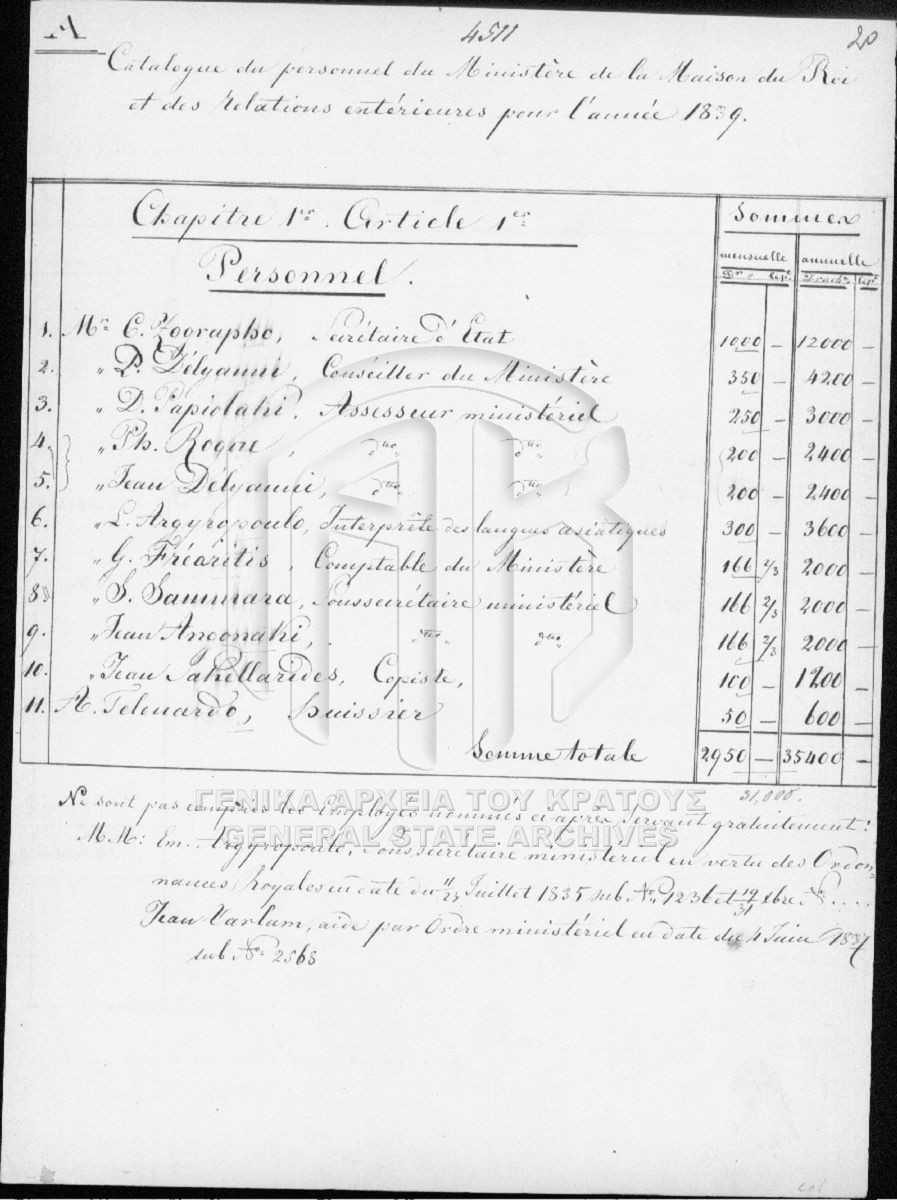 A 4511 20
Catalogue du personnel du Ministère de la Maison du Roi
et des relations extérieures pour l'année 1839.
Chapitre 1er. Article 1er
Sommes
mensuelle annuelle
Personnel.
Dr. lept. Drach. lept.
1. Mr. C. Zoorapho, Secrétaire d'Etat 1000 – 12000 –
2. „ P. Délyanni, Conseiller du Ministère 350 – 4200 –
3. „ D. Papiolaki, Assesseur ministériel 250 – 3000 –
4. „ Ph. Rogoie, dto „ dto „ 200 – 2400 –
5. „ Jean Délyanni, dto „ dto „ 200 – 2400 –
6. „ L. Argyropoulo, Interprète des langues asiatiques 300 – 3600 –
7. „ G. Fréaritis, Comptable du Ministère 166 2/3 2000 –
8. „ S. Sammara, Soussecrétaire ministériel 166 2/3 2000 –
9. „ Jean Angonaki, dto „ dto „ 166 2/3 2000 –
10. „ Jean Sakellarides, Copiste, 100 – 1200 –
11. A. Telouardo, huissier 50 – 600 –
Somme totale 2950 – 35400 –
31,000.
ΓΕΝΙΚΑ ΑΡΧΕΙΑ ΤΟΥ ΚΡΑΤΟΥΣ
Ne sont pas compris les Employés nommés ci-après servant gratuitement:
GENERAL STATE ARCHIVES
M M: Em. Argyropoulo, Soussecrétaire ministériel en vertu des Ordon-
nances Royales en date du 11/23 Juillet 1835 sub No. 1236 et 19/31 Xbre No. ....
Jean Varlam, aide par Ordre ministériel en date du 4 Juin 1837
sub No. 2563